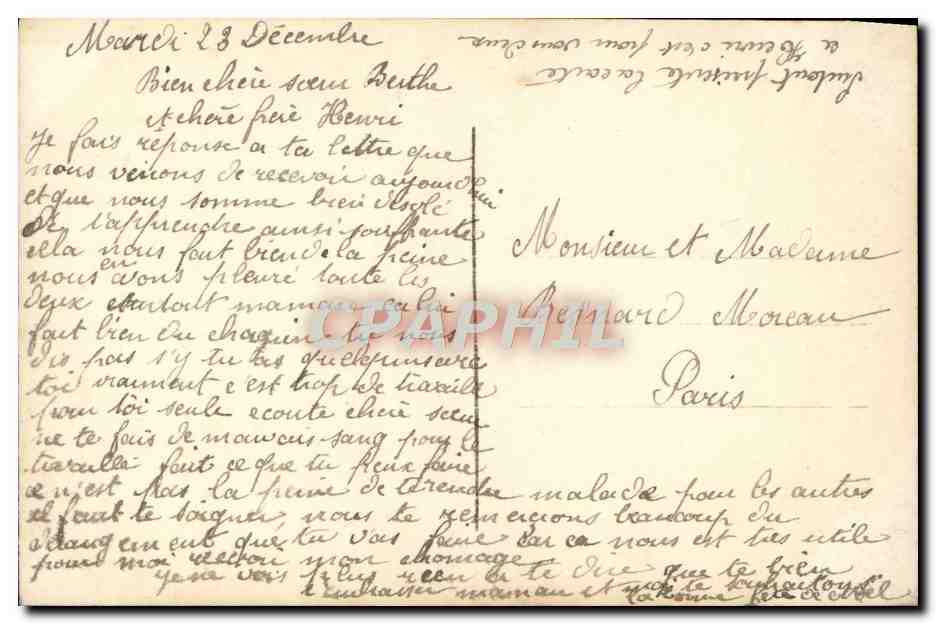 Mardi 23 Décembre
Bien chère sœur Berthe
et chère frère Henri
Je fais réponse a ta lettre que
nous venons de recevoir aujourd hui
et que nous somme bien désolé
de t'apprendre ainsi souffrante
cela nous fait bien de la peine
nous en avons pleuré toute les
deux surtout maman ca lui
fait bien du chagrin tu nous
dis pas s'y tu as quelqu'un avec
toi vraiment c'est trop de travaille
pour toi seule ecoute chère sœur
ne te fais de mauvais sang pour le
travaille fait ce que tu peux faire
ce n'est pas la peine de te rendre malade pour les autres
il faut te soigner nous te remercions beaucoup du
dérangement que tu vas faire car ca nous est très utile
pour moi recevoir mon chomage
je ne vois plus rien a te dire que te bien
t'embrasser maman et moi te souhaitons
la bonne fête de Noël
surtout présente la carte
a Henri c'est pour vous deux
Monsieur et Madame
Bernard Moreau
Paris
CPAPHIL